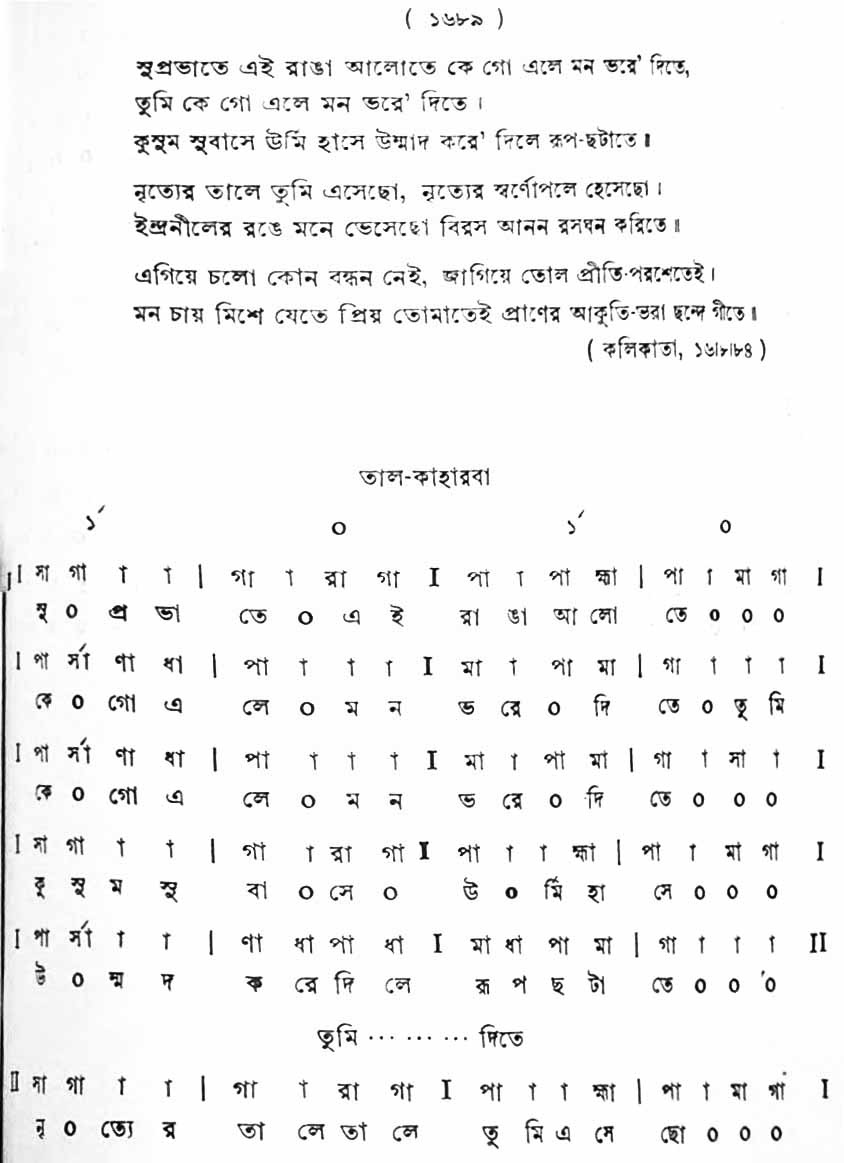 ( ১৬৮৯ )
সুপ্রভাতে এই রাঙা আলোতে কে গো এলে মন ভরে' দিতে,
তুমি কে গো এলে মন ভরে' দিতে ।
কুসুম সুবাসে উর্মি হাসে উম্মাদ করে' দিলে রূপ-ছটাতে ॥
নৃত্যের তালে তুমি এসেছো, নৃত্যের স্বর্ণোপলে হেসেছো ।
ইন্দ্রনীলের রঙে মনে ভেসেছো বিরস আনন রসঘন করিতে ॥
এগিয়ে চলো কোন বন্ধন নেই, জাগিয়ে তোল প্রীতি-পরশেতেই ।
মন চায় মিশে যেতে প্রিয় তোমাতেই প্রাণের আকুতি-ভরা ছন্দে গীতে ॥
( কলিকাতা, ১৬।৮।৮৪ )
তাল-কাহারবা
১´ ০ ১´ ০
I সা গা া া | গা া রা গা I পা া পা হ্মা | পা া মা গা I
সু ০ প্র ভা তে ০ এ ই রা ঙা আ লো তে ০ ০ ০
I পা র্সা ণা ধা | পা া া া I মা া পা মা | গা া া া I
কে ০ গো এ লে ০ ম ন ভ রে ০ দি তে ০ তু মি
I পা র্সা ণা ধা | পা া া া I মা া পা মা | গা া সা া I
কে ০ গো এ লে ০ ম ন ভ রে ০ দি তে ০ ০ ০
I সা গা া া | গা া রা গা I পা া া হ্মা | পা া মা গা I
কু সু ম সু বা ০ সে ০ উ ০ র্মি হা সে ০ ০ ০
I পা র্সা া া | ণা ধা পা ধা I মা ধা পা মা | গা া া া II
উ ০ ম্ম দ ক রে দি লে রূ প ছ টা তে ০ ০ ০
তুমি ... ... ... দিতে
II সা গা া া | গা া রা গা I পা া া হ্মা | পা া মা গা I
নৃ ০ ত্যে র তা লে তা লে তু মি এ সে ছো ০ ০ ০